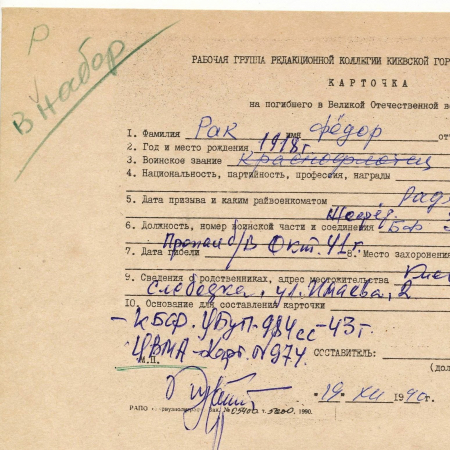 Р
в Набор
РАБОЧАЯ ГРУППА РЕДАКЦИОННОЙ КОЛЛЕГИИ КИЕВСКОЙ ГОР
КАРТОЧКА
на погибшего в Великой Отечественной во
1. Фамилия Рак имя Фёдор от
2. Год и место рождения 1918г
3. Воинское звание Краснофлотец
4. Национальность, партийность, профессия, награды
5. Дата призыва и каким райвоенкоматом
6. Должность, номер воинской части и соединения КБФ
Пропал б/в Окт. 41г.
7. Дата гибели 8. Место захоронения
9. Сведения о родственниках, адрес местожительства
Слободка, ул. 2
10. Основание для составления карточки
– КБФ. 984сс-43г
ЦВМА - Карт. № 974.
М.П. СОСТАВИТЕЛЬ:
(дол
19. XII 1990г
РАПО Зак. 1990.